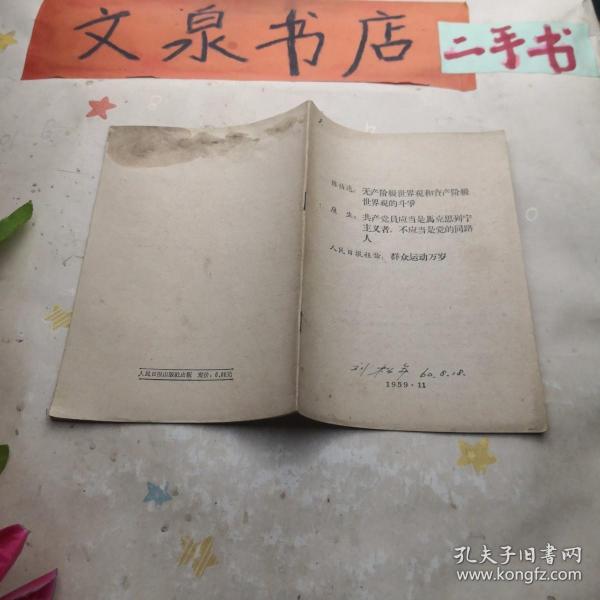 文泉书店
二手书
陈伯达：无产阶级世界观和资产阶级
世界观的斗爭
康生：共产党員应当是馬克思列宁
主义者，不应当是党的同路
人
人民日报社論：群众运动万岁
60.8.18.
1959·11
人民日报出版社出版 定价：0.06元
孔夫子旧书网
www.kongfz.com